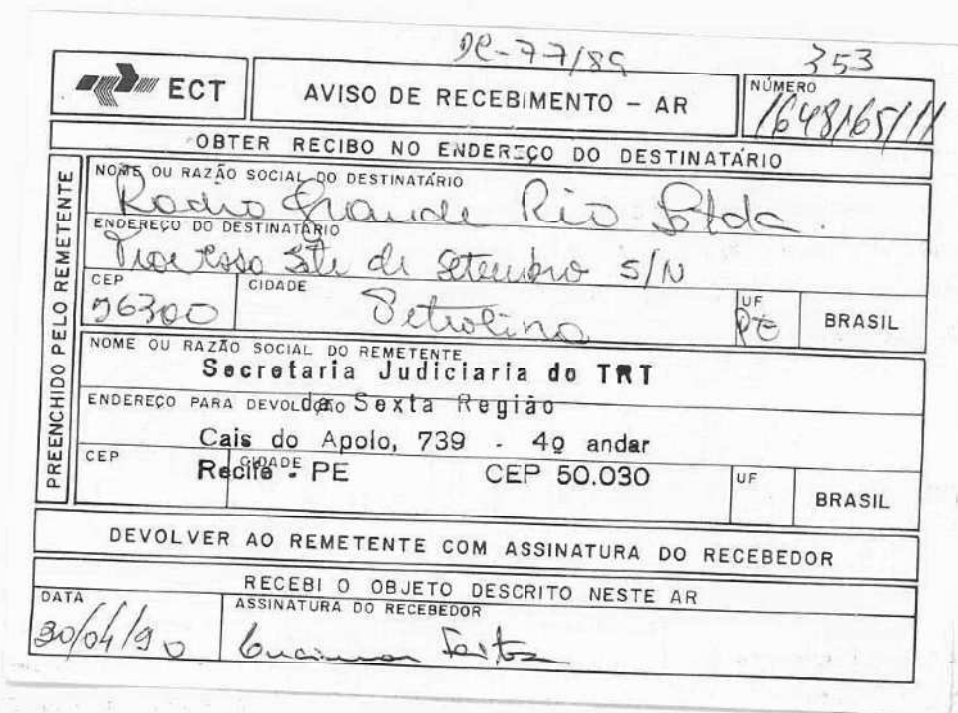 DC-77/89 353
ECT
AVISO DE RECEBIMENTO - AR
NÚMERO
1648165/11
OBTER RECIBO NO ENDEREÇO DO DESTINATÁRIO
PREENCHIDO PELO REMETENTE
NOME OU RAZÃO SOCIAL DO DESTINATÁRIO
Radio Grande Rio Ltda.
ENDEREÇO DO DESTINATÁRIO
Travessa Sete de Setembro S/N
CEP CIDADE UF
56300 Petrolina PE BRASIL
NOME OU RAZÃO SOCIAL DO REMETENTE
Secretaria Judiciaria do TRT
ENDEREÇO PARA DEVOLUÇÃO da Sexta Região
Cais do Apolo, 739 - 4º andar
CEP CIDADE UF
Recife - PE CEP 50.030 BRASIL
DEVOLVER AO REMETENTE COM ASSINATURA DO RECEBEDOR
RECEBI O OBJETO DESCRITO NESTE AR
DATA ASSINATURA DO RECEBEDOR
30/04/90